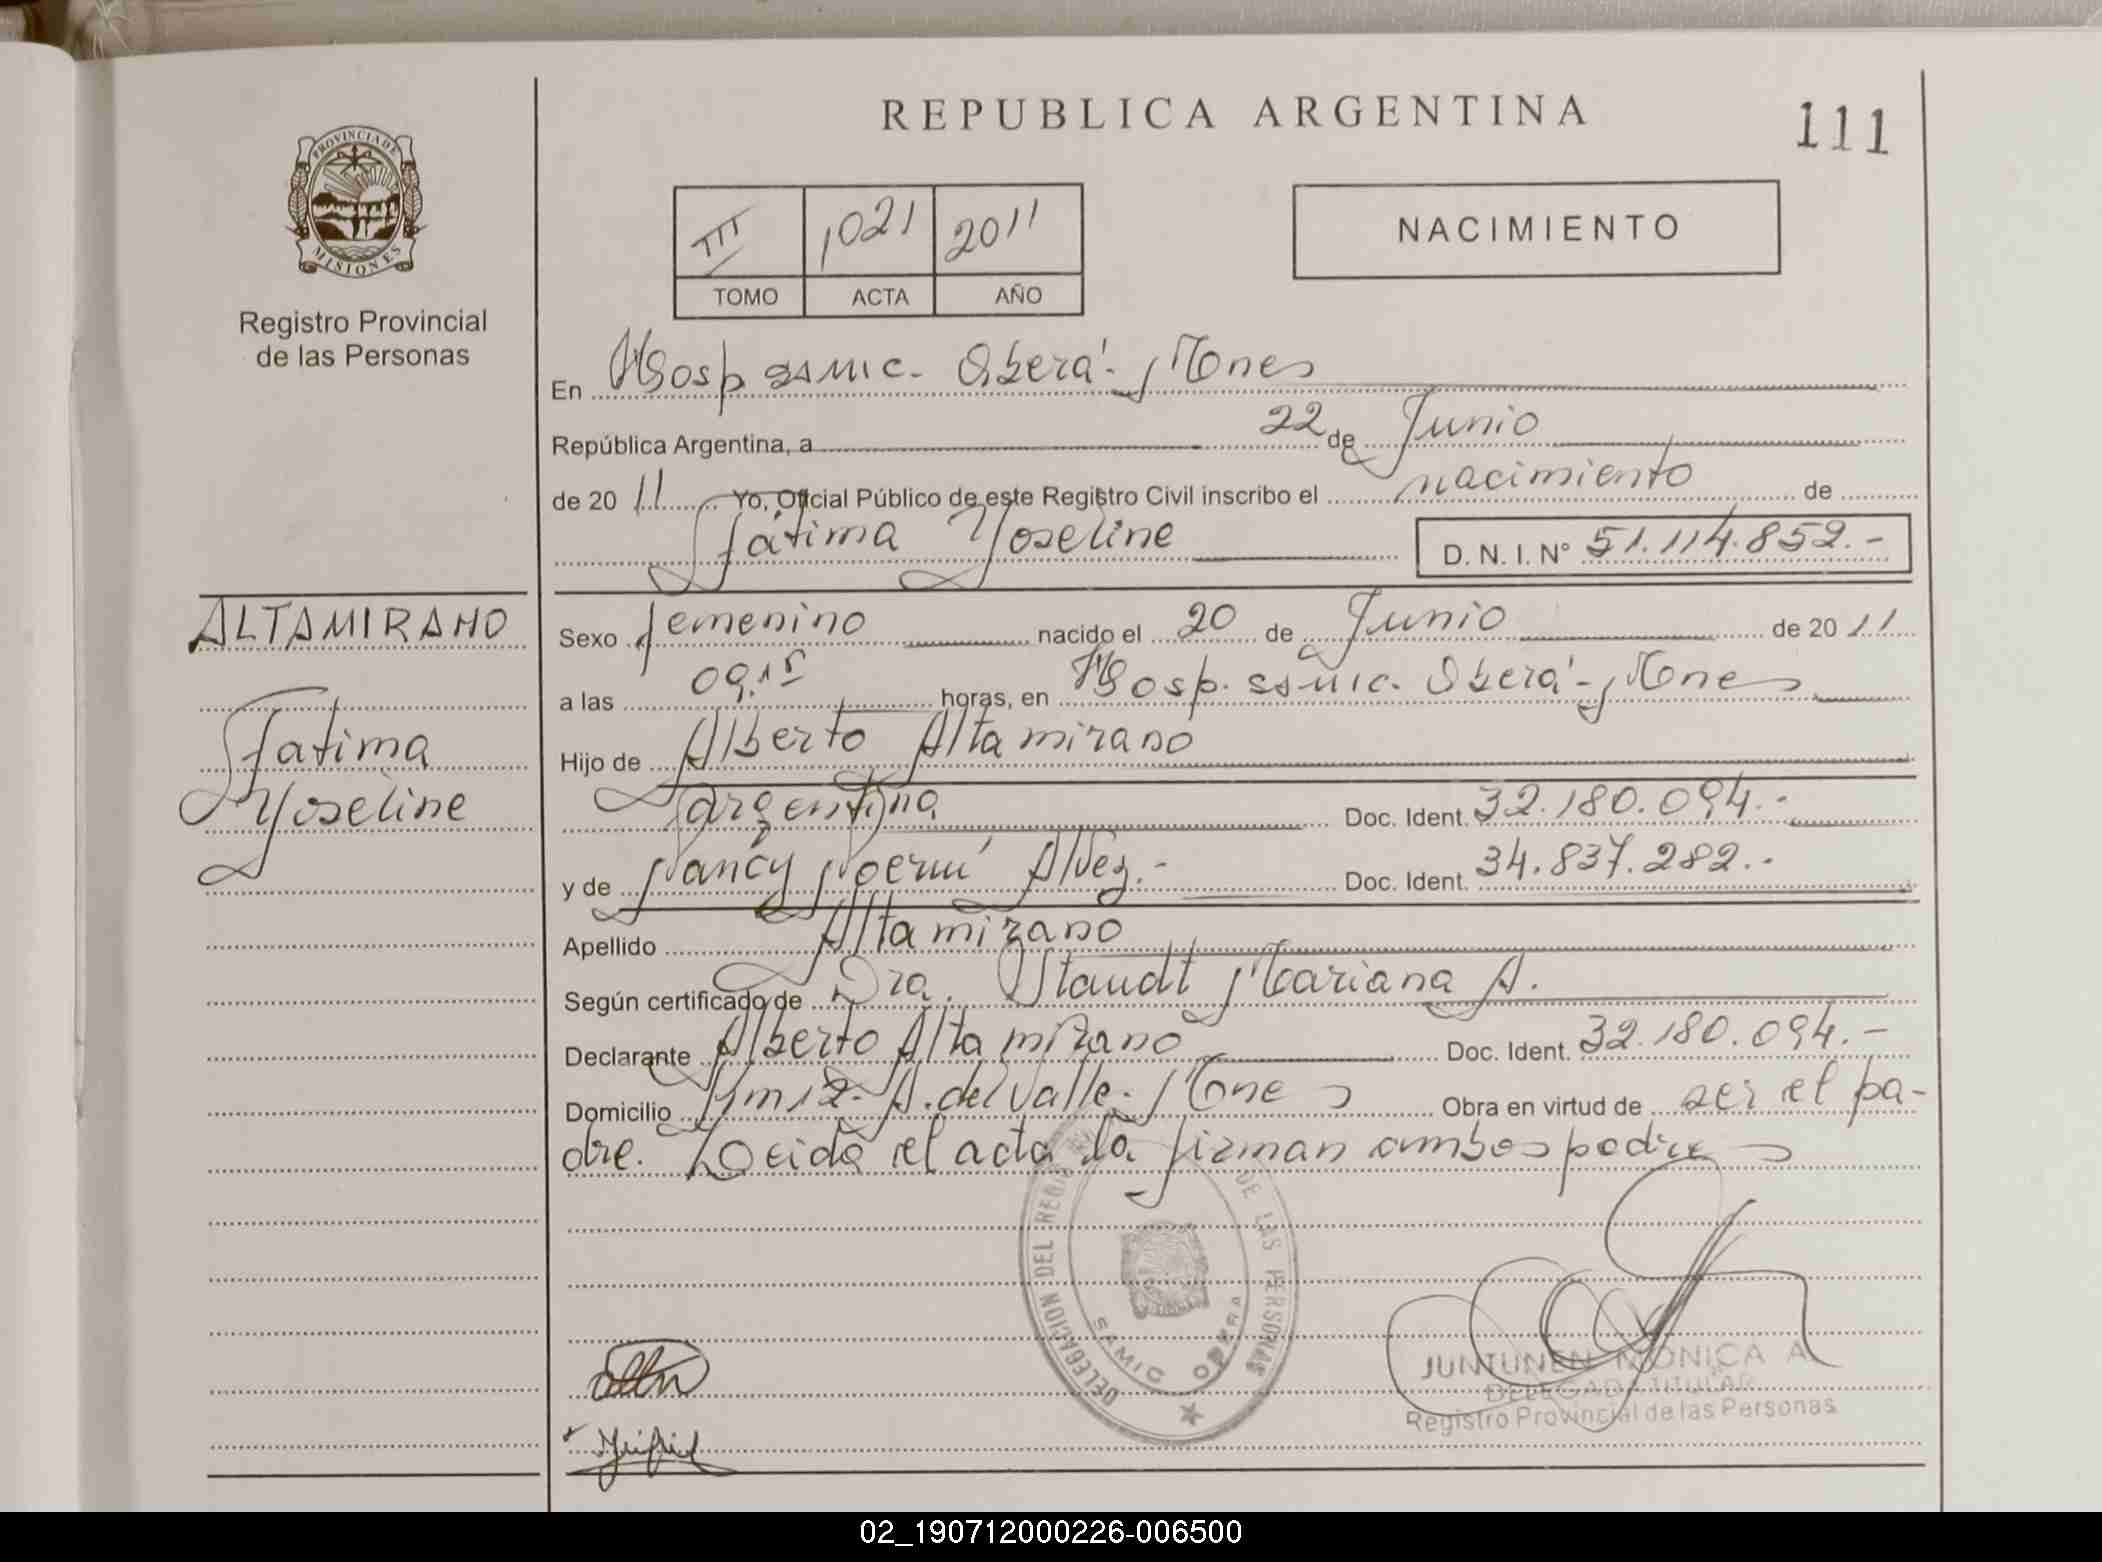 REPUBLICA ARGENTINA
111
PROVINCIA DE
MISIONES
Registro Provincial
de las Personas
III 1021 2011
TOMO ACTA AÑO
NACIMIENTO
En Hosp. SAMIC. Oberá - Mnes
República Argentina, a 22 de Junio
de 20 11 Yo, Oficial Público de este Registro Civil inscribo el nacimiento de
Fátima Yoseline D. N. I. Nº 51.114.852.-
ALTAMIRANO
Fatima
Yoseline
Sexo femenino nacido el 20 de Junio de 20 11
a las 09.15 horas, en Hosp. SAMIC. Oberá - Mnes
Hijo de Alberto Altamirano
argentina Doc. Ident. 32.180.094.-
y de Nancy Noemí Alvez.- Doc. Ident. 34.837.282.-
Apellido Altamirano
Según certificado de Dra. Staudt Mariana A.
Declarante Alberto Altamirano Doc. Ident. 32.180.094.-
Domicilio Km 12 - A. del Valle - Mnes Obra en virtud de ser el pa-
dre. Leída el acta la firman ambos padres
DELEGACION DEL REGIS DE LAS PERSONAS
SAMIC OBERA
JUNTUNEN MONICA A.
DELEGADA TITULAR
Registro Provincial de las Personas
02_190712000226-006500